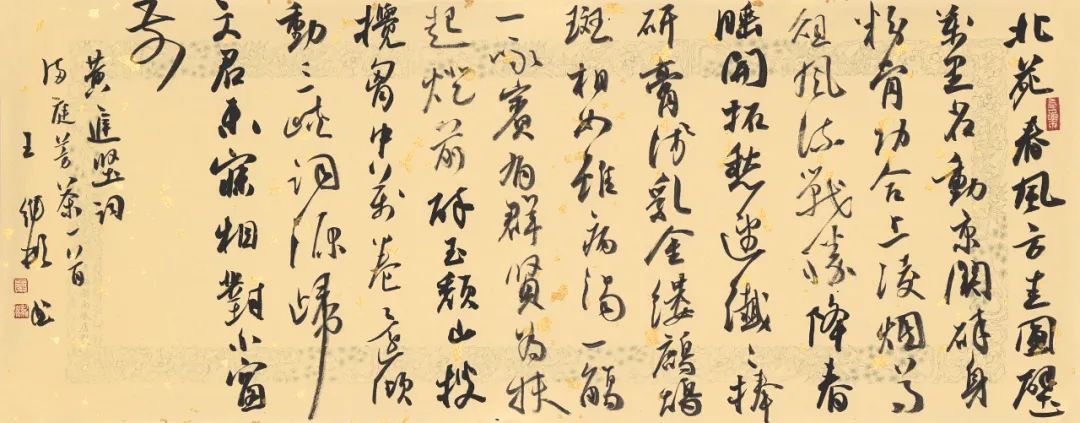 北苑春風方圭圓璧
萬里名動京關碎身
粉骨功合上凌烟尊
俎風流戰勝降春
睡開拓愁邊纖々捧
研膏濺乳金縷鷓鴣
斑相如雖病渴一觴
一詠賓有群賢為扶
起燈前醉玉頹山搜
攪胸中萬卷還傾
動三峽詞源歸
文君未寐相對小窗
前
黃庭堅詞
滿庭芳茶一首
王